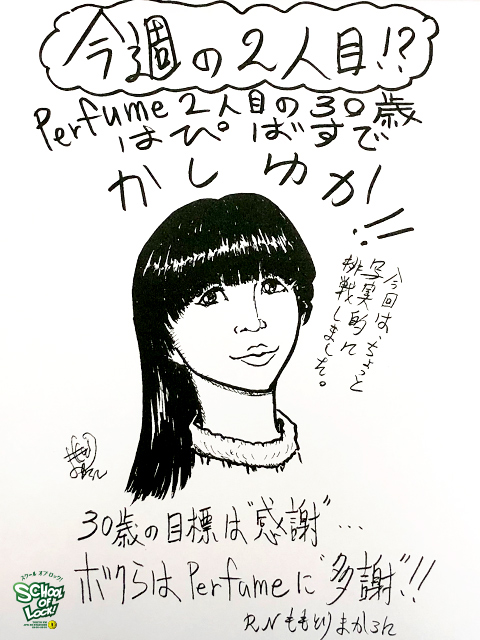 今週の2人目!?
Perfume 2人目の30歳
はぴばすで
かしゆか!!
今回は、ちょっと
写実的に
挑戦しました。
30歳の目標は“感謝”…
ボクらはPerfumeに“多謝”!!
R.N ももとりまかろん
スクール オブ ロック!
SCHOOL OF LOCK!